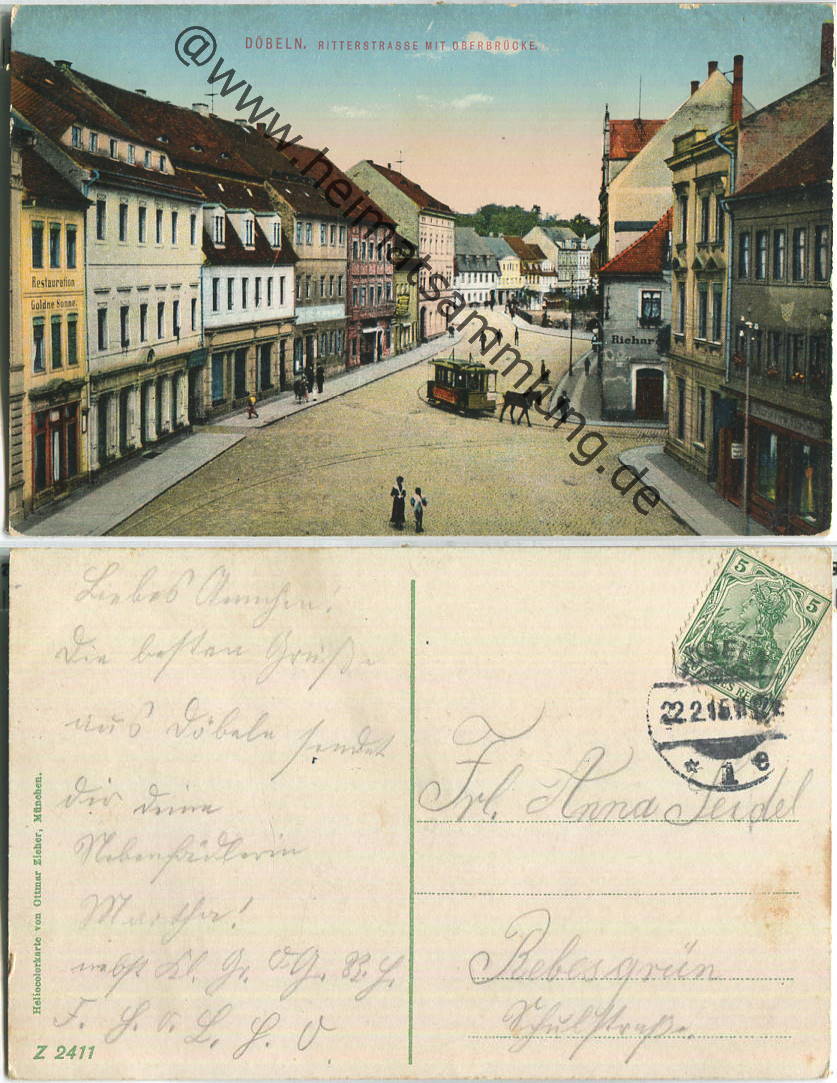 DÖBELN. RITTERSTRASSE MIT OBERBRÜCKE.
@www.heimatsammlung.de
Restauration
Goldne Sonne.
Richar
Liebes Annchen!
Die besten Grüße
aus Döbeln sendet
dir deine
Martha!
nebst Kl. Gr.
Heliocolorkarte von Ottmar Zieher, München.
Z 2411
5 5
22.2.15.
* 1 e
Frl. Anna Seidel
Bebesgrün
Schulstraße.